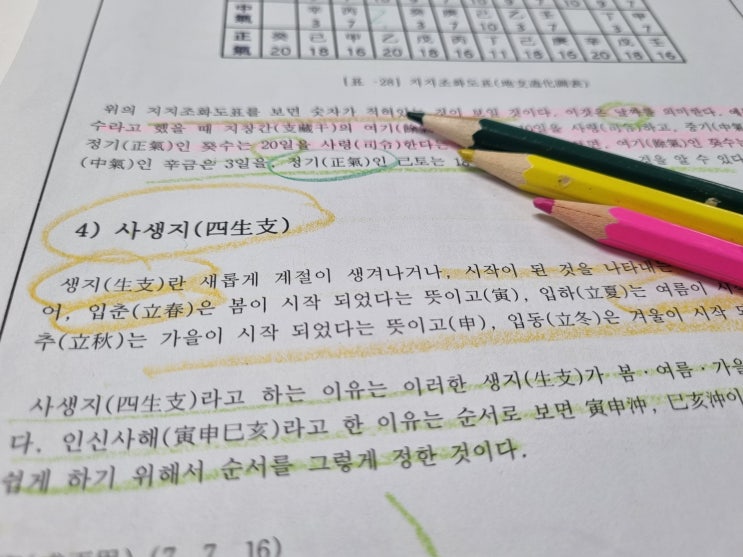 中氣 辛 3 丙 7 癸 3 戊 7 己 7 乙 3 壬 7 丁 3 甲 7
正氣 癸 20 己 18 甲 16 乙 20 戊 18 丙 16 丁 11 己 18 庚 16 辛 20 戊 18 壬 16
[表 -28] 지지조화도표(地支造化圖表)
위의 지지조화도표를 보면 숫자가 적혀있는 것이 보일 것이다. 이것은 날짜를 의미한다. 예
수라고 했을 때 지장간(支藏干)의 여기(餘 10일을 사령(司令)하고, 중기(中氣
정기(正氣)인 癸수는 20일을 사령(司令)한다는 면, 여기(餘氣)인 癸수는
(中氣)인 辛금은 3일을, 정기(正氣)인 己토는 것을 알 수 있다
4) 사생지(四生支)
생지(生支)란 새롭게 계절이 생겨나거나, 시작이 된 것을 나타내는
어, 입춘(立春)은 봄이 시작 되었다는 뜻이고(寅), 입하(立夏)는 여름이 시
추(立秋)는 가을이 시작 되었다는 뜻이고(申), 입동(立冬)은 겨울이 시작 되
사생지(四生支)라고 하는 이유는 이러한 생지(生支)가 봄·여름·가을
다. 인신사해(寅申巳亥)라고 한 이유는 순서로 보면 寅申沖, 巳亥沖이
쉽게 하기 위해서 순서를 그렇게 정한 것이다.
(7, 7, 16)